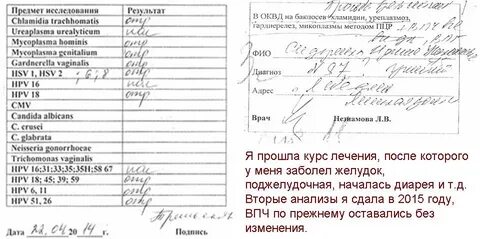 Предмет исследования Результат
Chlamidia trachhomatis отр
Ureaplasma urealyticum пол
Mycoplasma hominis отр
Mycoplasma genitalium отр
Gardnerella vaginalis отр
HSV 1, HSV 2 ; 6; 8 отр
HPV 16 пол
HPV 18 отр
CMV
Candida albicans
C. crusei
C. glabrata
Neisseria gonorrhoeae
Trichomonas vaginalis
HPV 16;31;33;35;35H;58 67 пол
HPV 18; 45; 39; 59 отр
HPV 6, 11 отр
HPV 51, 26 отр
Дата 22 04 2014 г. Подпись
В ОКВД на бакпосев хламидии, уреплазмоз,
гарднерелез, микоплазмы методом ПЦР
ФИО
Диагноз
Адрес
Врач Незнамова Л.В.
Я прошла курс лечения, после которого
у меня заболел желудок,
поджелудочная, началась диарея и т.д.
Вторые анализы я сдала в 2015 году,
ВПЧ по прежнему оставались без
изменения.